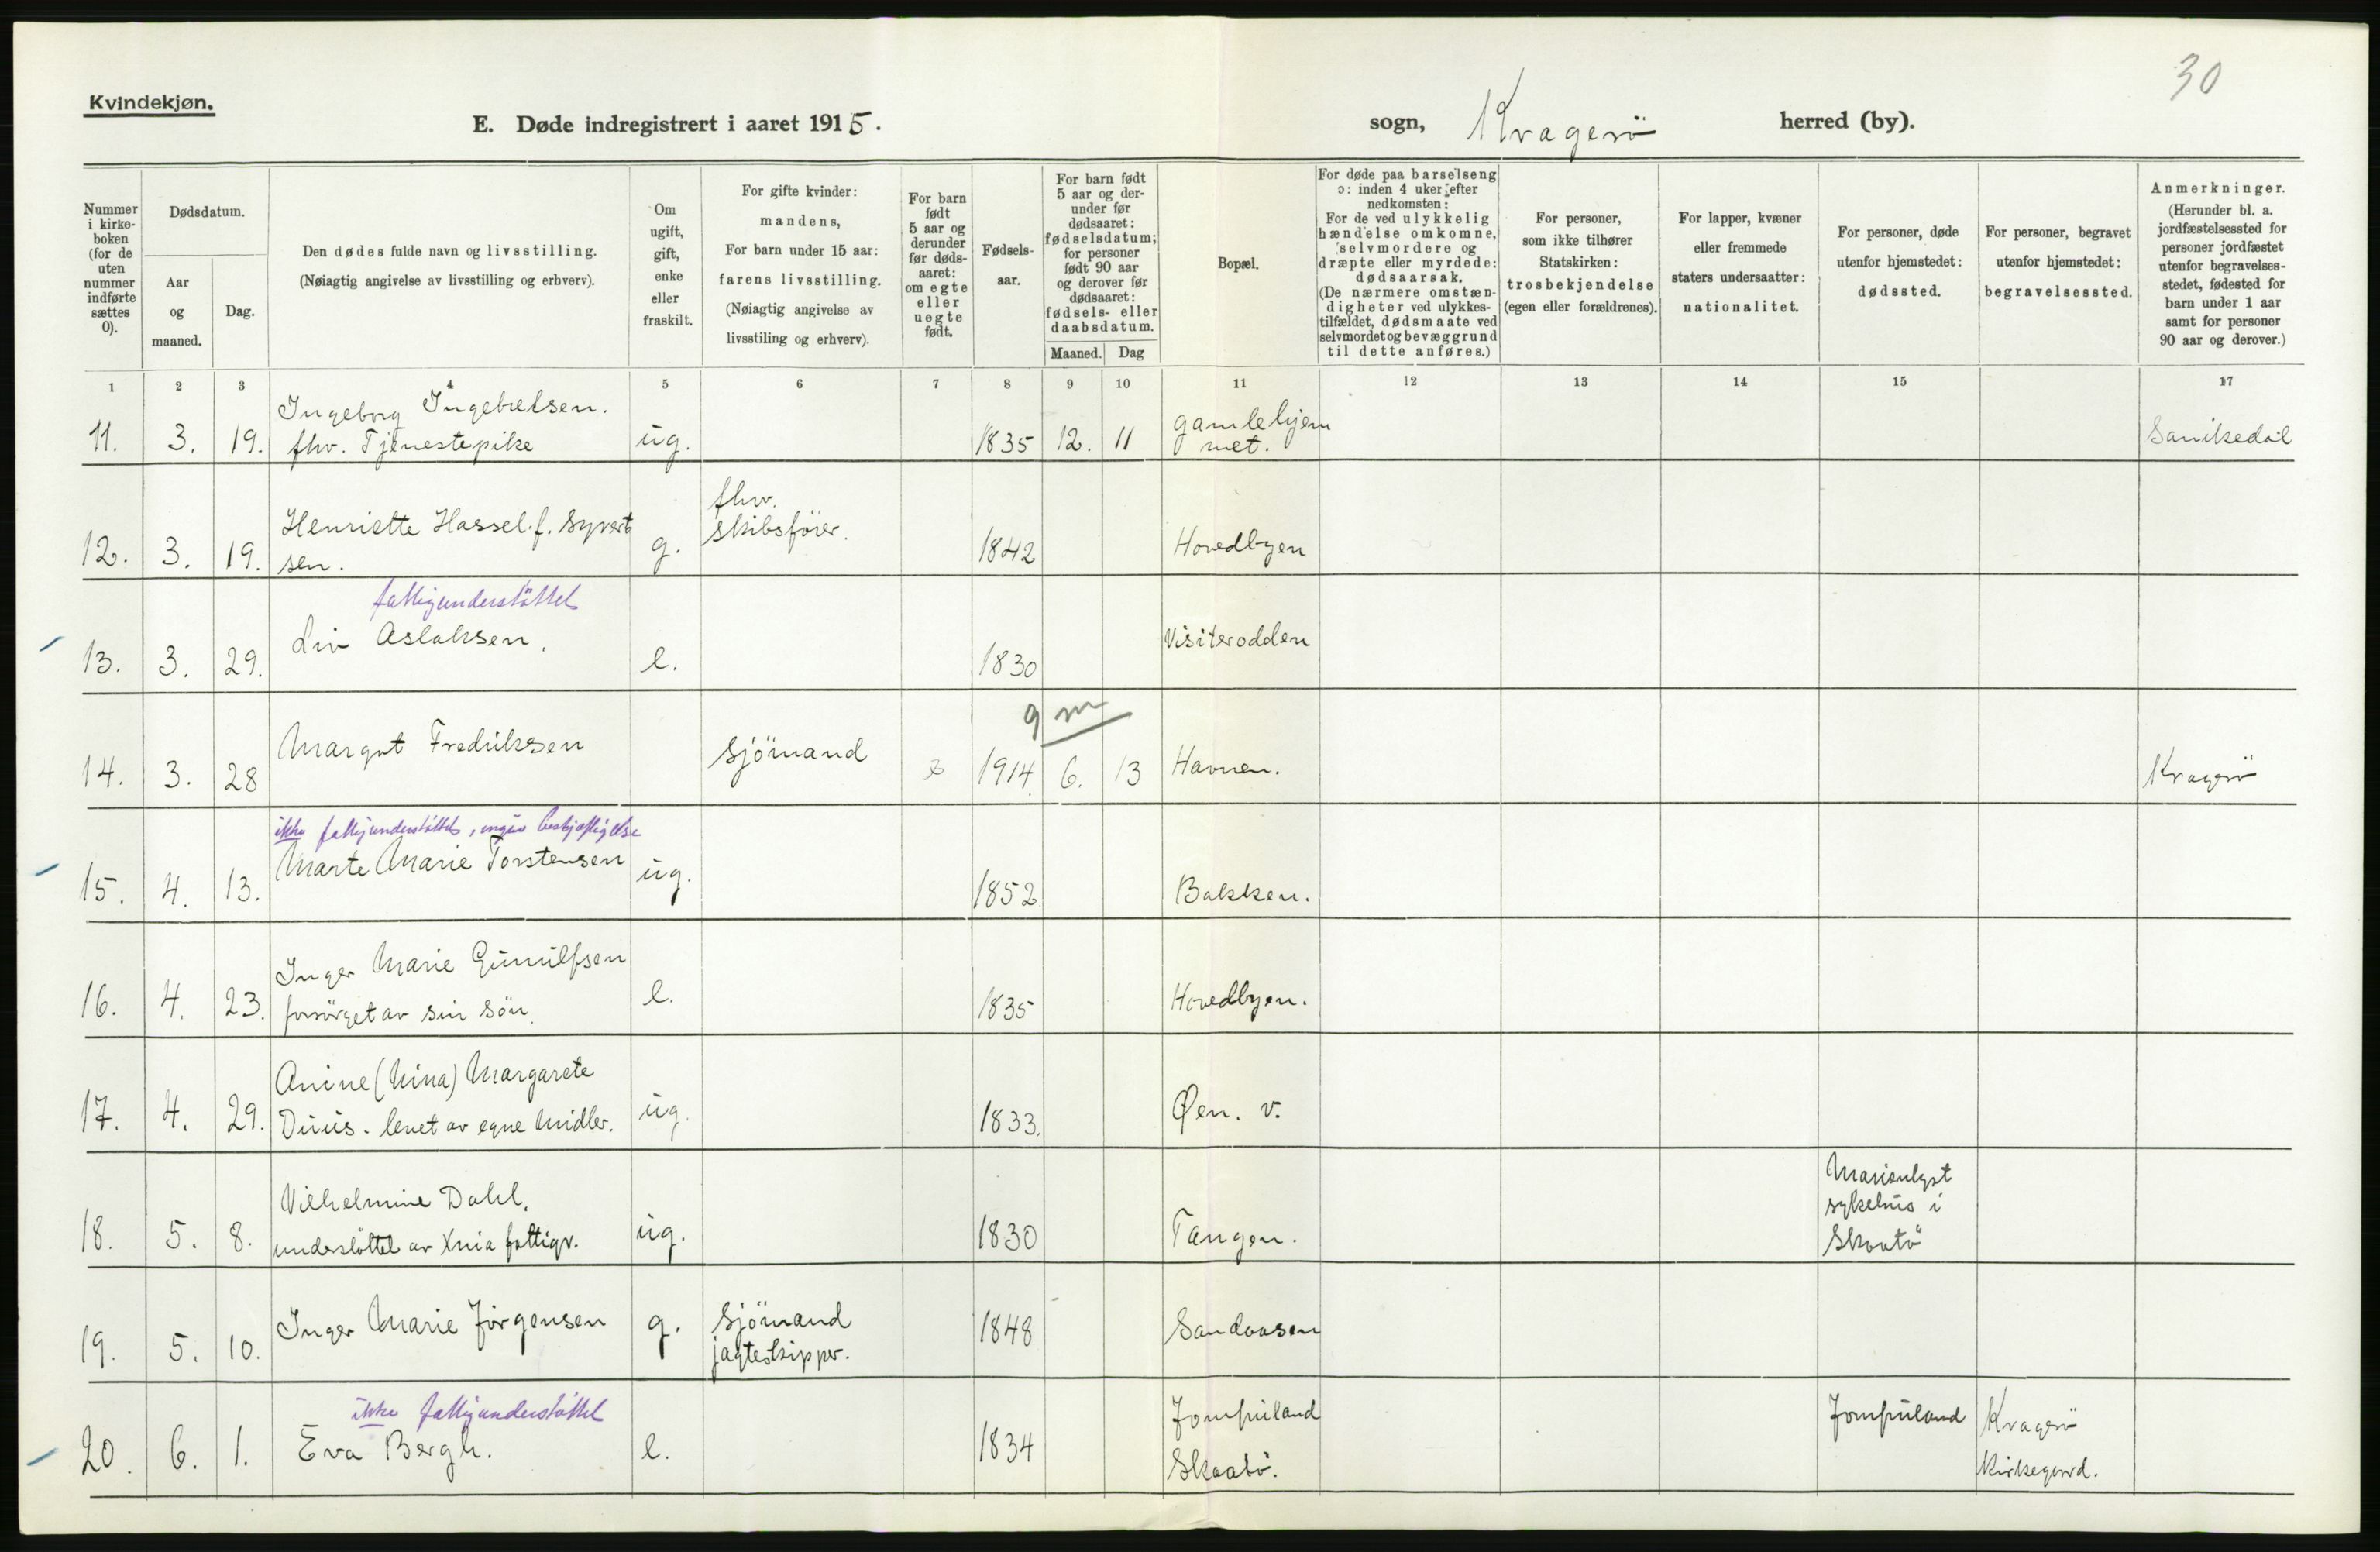 30
Kvindekjøn.
E. Døde indregistrert i aaret 1915.
sogn, Kragerö herred (by).
Nummer i kirke- boken (for de uten nummer indførte sættes 0).
Dødsdatum.
Aar og maaned.
Dag.
Den dødes fulde navn og livsstilling.
(Nøiagtig angivelse av livsstilling og erhverv).
Om ugift, gift, enke eller fraskilt.
For gifte kvinder: mandens,
For barn under 15 aar: farens livsstilling.
(Nøiagtig angivelse av livsstiling og erhverv).
For barn født 5 aar og derunder før døds- aaret: om egte eller uegte født.
Fødsels- aar.
For barn født 5 aar og der- under før dødsaaret: fødselsdatum; for personer født 90 aar og derover før dødsaaret: fødsels- eller daabsdatum.
Maaned. Dag
Bopæl.
For døde paa barselseng ɔ: inden 4 uker efter nedkomsten:
For de ved ulykkelig hændelse omkomne, selvmordere og dræpte eller myrdede: dødsaarsak.
(De nærmere omstæn- digheter ved ulykkes- tilfældet, dødsmaate ved selvmordet og bevæggrund til dette anføres.)
For personer, som ikke tilhører Statskirken: trosbekjendelse (egen eller forældrenes).
For lapper, kvæner eller fremmede staters undersaatter: nationalitet.
For personer, døde utenfor hjemstedet: dødssted.
For personer, begravet utenfor hjemstedet: begravelsessted.
Anmerkninger.
(Herunder bl. a. jordfæstelsessted for personer jordfæstet utenfor begravelses- stedet, fødested for barn under 1 aar samt for personer 90 aar og derover.)
1 2 3 4 5 6 7 8 9 10 11 12 13 14 15 17
11. 3. 19. Ingeborg Ingebretsen. fhv. Tjenestepike ug. 1835 12. 11 gamlehjem met. Sanikedal
12. 3. 19. Henriette Hassel f. Syvert sen. g. fhv. skibsförer. 1842 Hovedbyen
fattigunderstöttet
13. 3. 29. Liv Aslaksen. e. 1830 Visiterodden
9 m
14. 3. 28 Margot Fredriksen Sjömand e 1914. 6. 13 Havnen. Kragerö
ikke fattigunderstöttet, ingen beskjæftigelse
15. 4. 13. Marte Marie Torstensen ug. 1852 Bakken.
16. 4. 23. Inger Marie Gunulfsen forsörget av sin sön. e. 1835 Hovedbyen.
17. 4. 29. Anine (Nina) Margarete Duus. levet av egne midler. ug. 1833. Øen. v.
18. 5. 8. Vilhelmine Dahl. understöttet av Xnia fattigv. ug. 1830 Tangen. Marienlyst sykehus i Skaatö
19. 5. 10. Inger Marie Jörgensen g. Sjömand jagteskipper. 1848 Sandaasen
ikke fattigunderstöttet
20. 6. 1. Eva Bergh. e. 1834 Jomfruland Skaatö. Jomfruland Kragerö Kirkegaard.